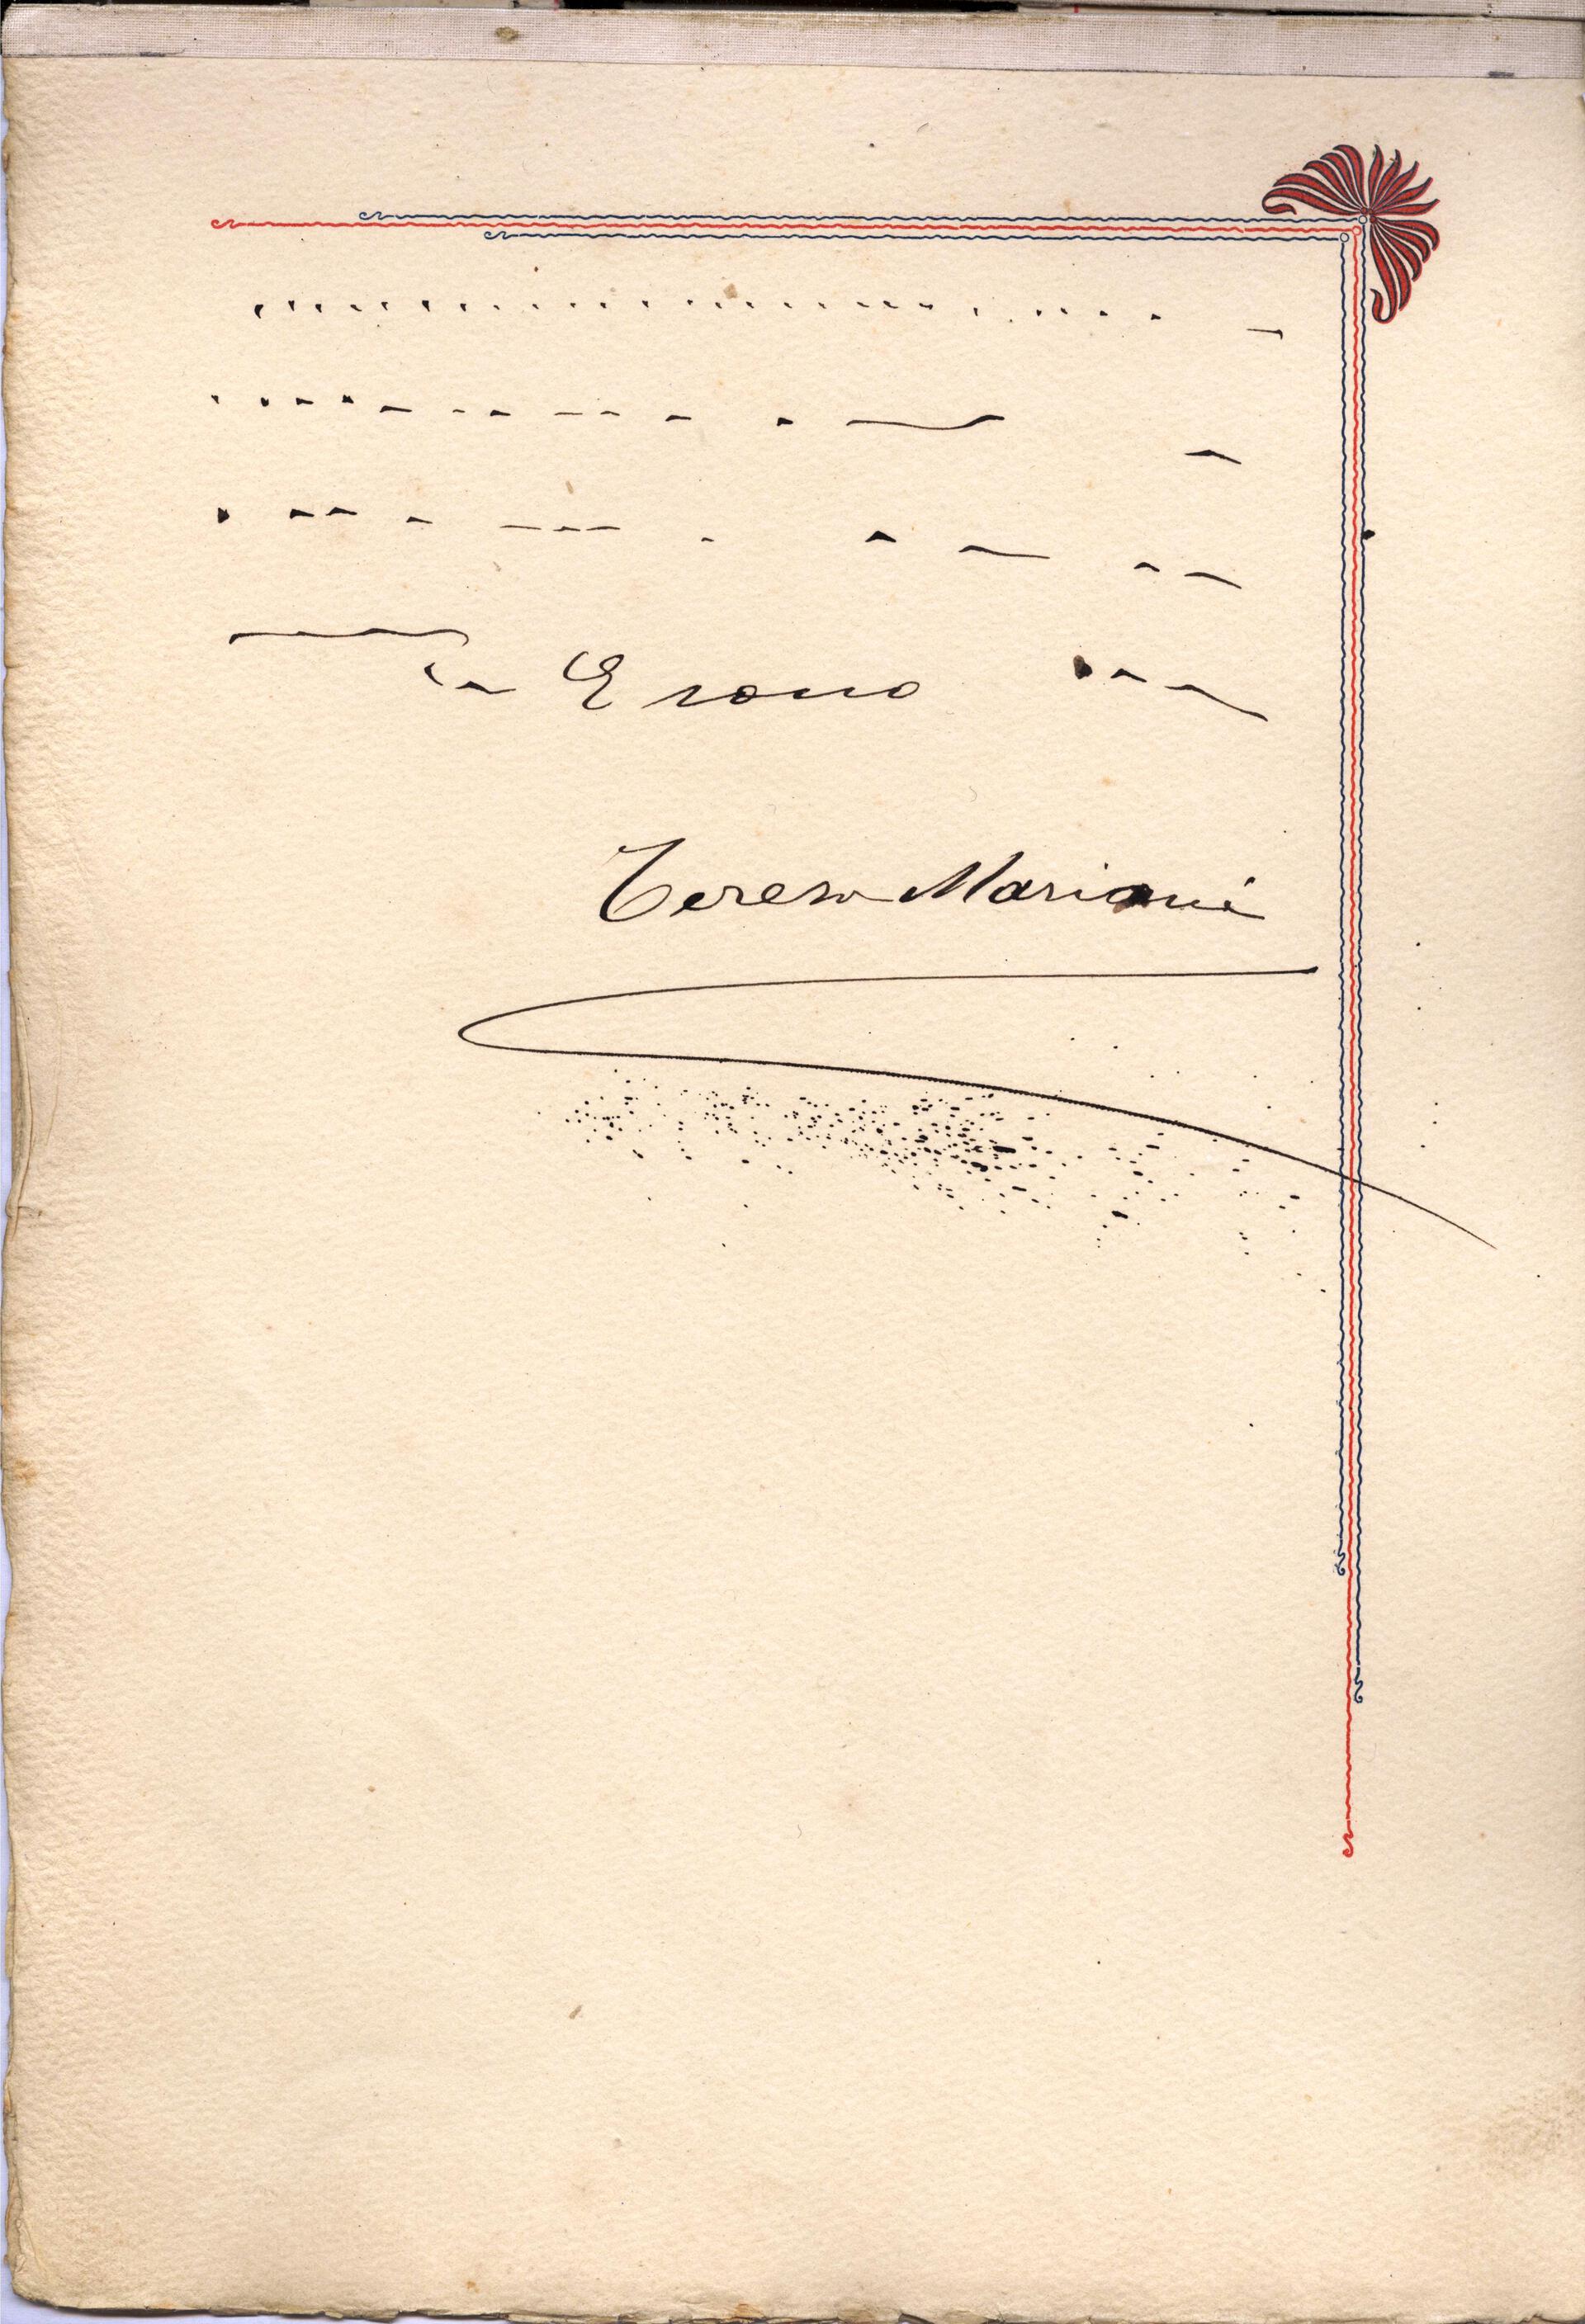 E sono
Teresa Mariani